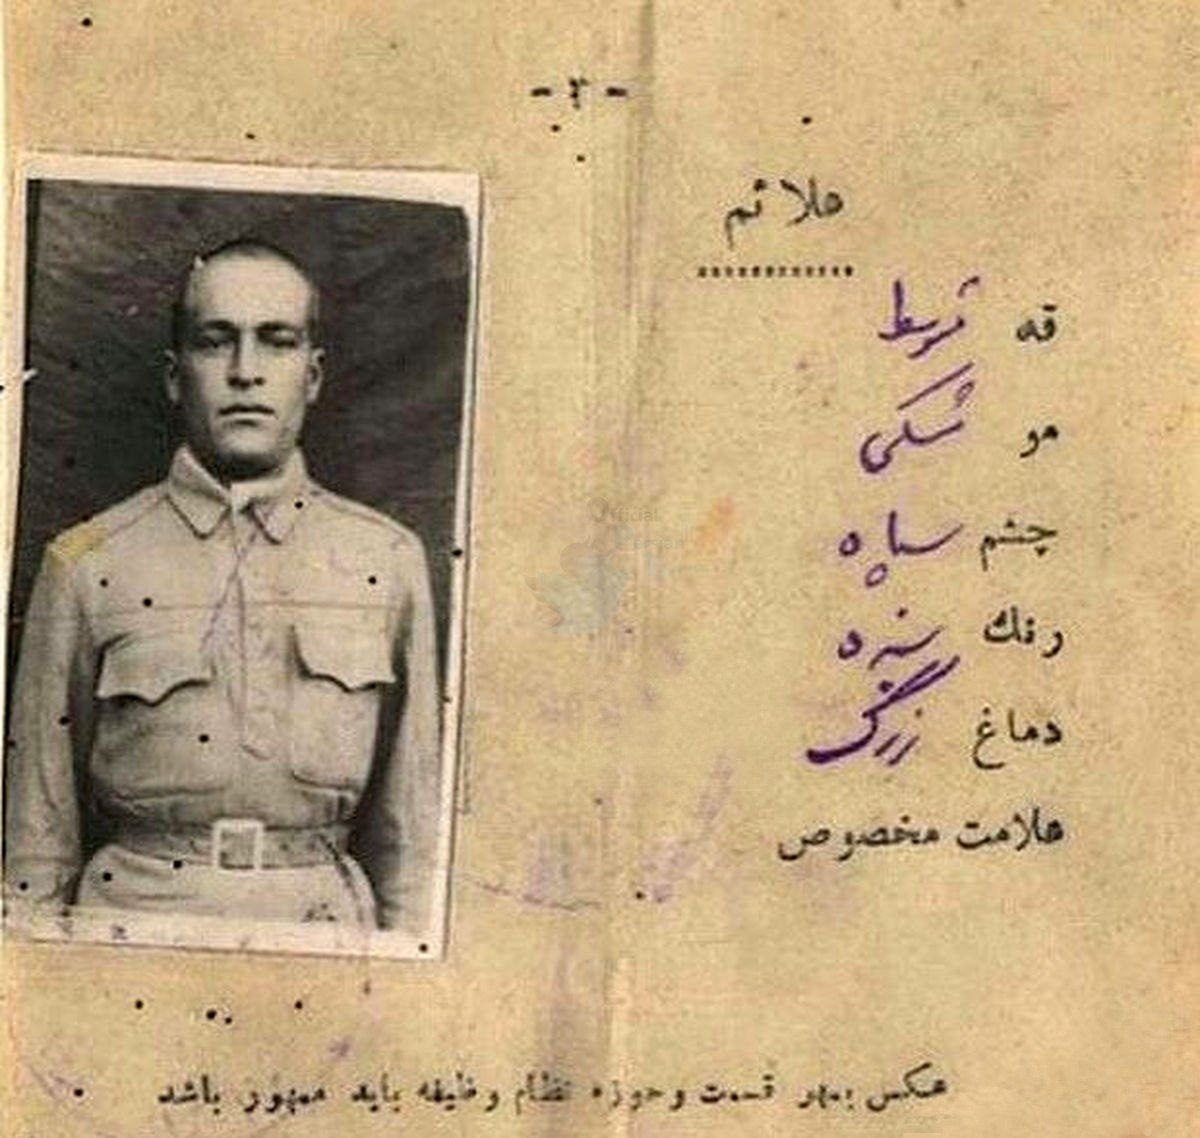 - ۳ -
علائم
قد متوسط
مو مشکی
چشم سیاه
رنك سبزه
دماغ بزرگ
علامت مخصوص
عکس بمهر قسمت و حوزه نظام وظیفه باید ممهور باشد
Official